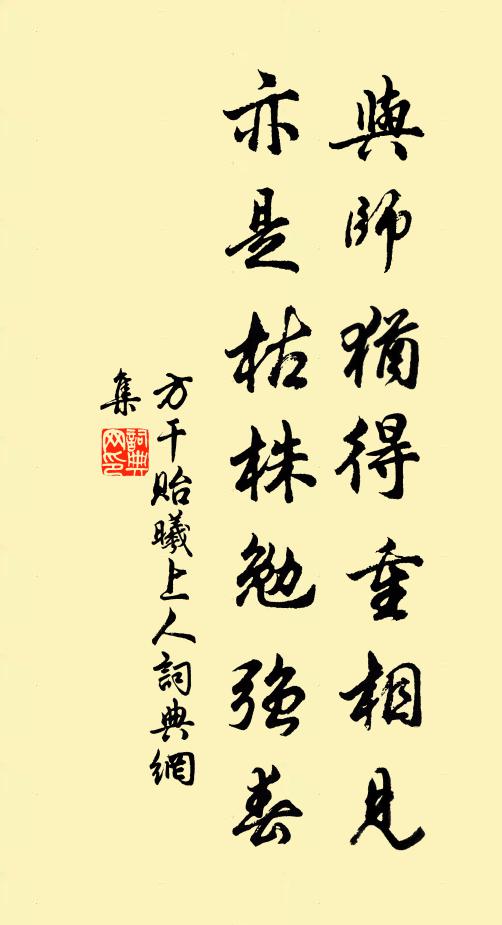 與師猶得重相見
亦是枯株勉強春
方干貽曦上人詞典網
集
詞典網印